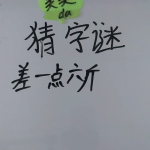 da
猜字谜
差一点六斤